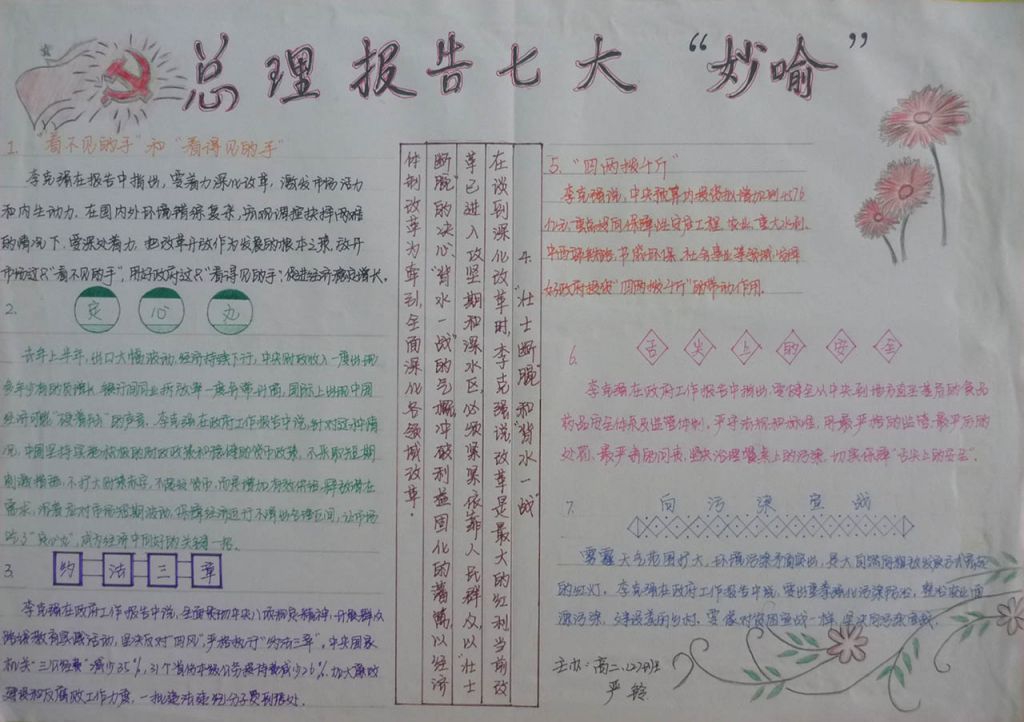 总理报告七大“妙喻”
1. “看不见的手”和“看得见的手”
李克强在报告中指出，要着力深化改革，激发市场活力
和内生动力。在国内外环境错综复杂，宏观调控抉择两难
的情况下，要深处着力，把改革开放作为发展的根本之策，放开
市场这只“看不见的手”，用好政府这只“看得见的手”，促进经济稳定增长。
2. 定 心 丸
去年上半年，出口大幅波动，经济持续下行，中央财政收入一度出现
多年少有的负增长，银行间同业拆放率一度异常升高，国际上出现中国
经济可能“硬着陆”的声音。李克强在政府工作报告中说，针对这种情
况，中国坚持实施积极的财政政策和稳健的货币政策，不采取短期
刺激措施，不扩大财政赤字，不超发货币，而是增加有效供给，释放潜在
需求，沉着应对市场短期波动，保障经济运行不滑出合理区间，让市场
吃了“定心丸”，成为经济稳中向好的关键一招。
3. 约 法 三 章
李克强在政府工作报告中说，全面落实中央八项规定精神，开展群众
路线教育实践活动，坚决反对“四风”，严格执行“约法三章”，中央国家
机关“三公经费”减少35%，31个省份本级公务接待费减少26%。加大廉政
建设和反腐败工作力度，一批违法违纪分子受到惩处。
4. “壮士断腕”和“背水一战”
在谈到深化改革时，李克强说，改革是最大的红利。当前改
革已进入攻坚期和深水区，必须紧紧依靠人民群众，以“壮士
断腕”的决心、“背水一战”的气概，冲破利益固化的藩篱，以经济
体制改革为牵引，全面深化各领域改革。
5. “四两拨千斤”
李克强说，中央预算内投资拟增加到4576
亿元，重点投向保障性安居工程、农业、重大水利、
中西部铁路、节能环保、社会事业等领域，发挥
好政府投资“四两拨千斤”的带动作用。
6. 舌 尖 上 的 安 全
李克强在政府工作报告中指出，要健全从中央到地方直至基层的食品
药品安全体系及监管体制，严守法规和标准，用最严格的监管、最严厉的
处罚、最严肃的问责，坚决治理餐桌上的污染，切实保障“舌尖上的安全”。
7. 向 污 染 宣 战
雾霾天气范围扩大，环境污染矛盾突出，是大自然向粗放发展方式亮起
的红灯。李克强在政府工作报告中说，要出重拳强化污染防治，整治农业面
源污染，建设美丽乡村，要像对贫困宣战一样，坚决向污染宣战。
主办：高二、（2）班
严铃